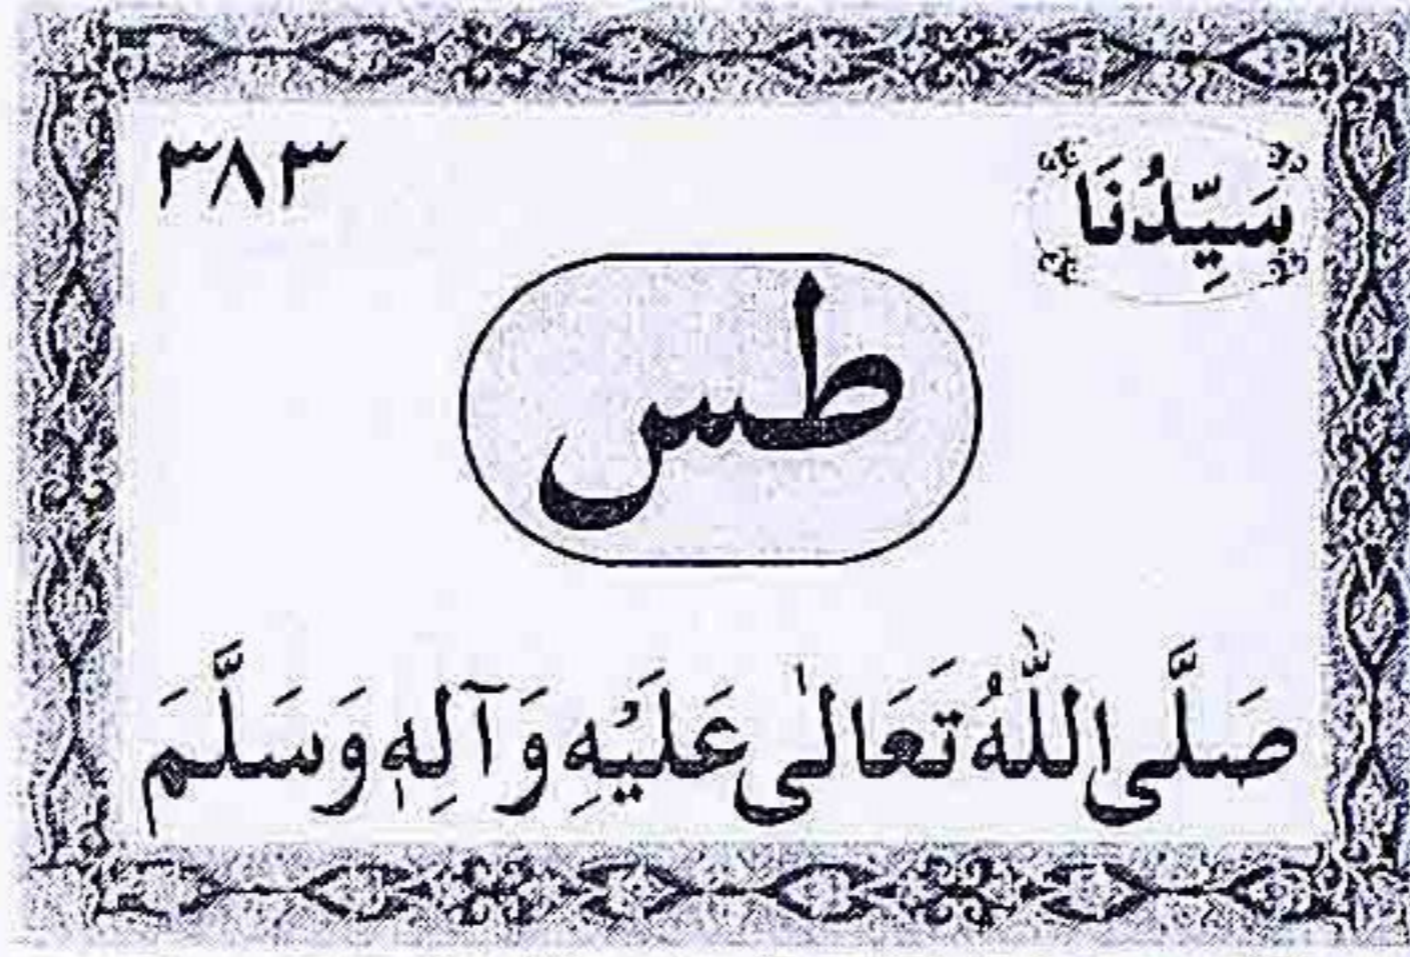 سَيِّدُنَا ٣٨٣
طس
صَلَّى اللّٰهُ تَعَالٰى عَلَيْهِ وَآلِهٖ وَسَلَّمَ